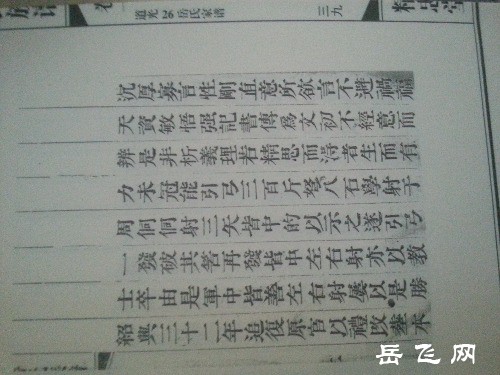 岳氏家谱
三九
沉厚寡言性剛直意所欲言不避禍福
天資敏悟强記書傳爲文初不經意而
辨是非析義理若精思而得者生而有
力未冠能引弓三百斤弩八石學射于
周侗侗射三矢皆中的以示之遂引弓
一發破其筈再發皆中左右射亦以教
士卒由是軍中皆善左右射屢以是勝
紹興三十二年追復原官以禮改塟
岳飞网